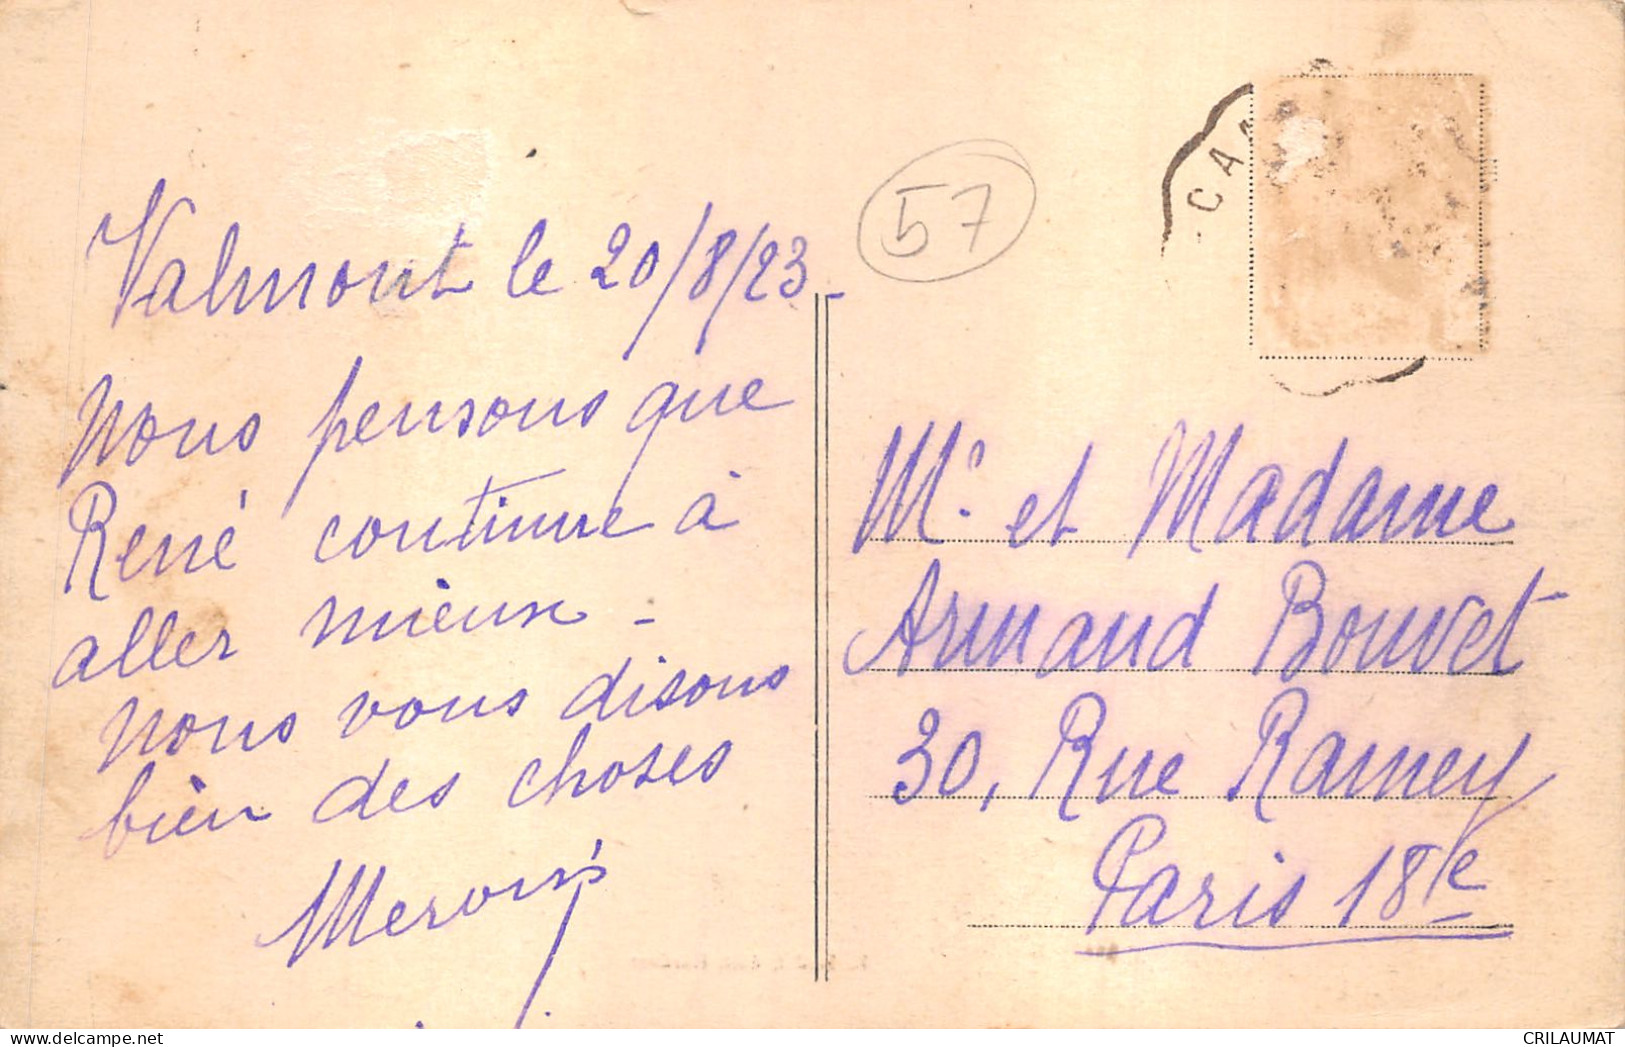 Valmont le 20/8/23-
Nous pensons que
René continue à
aller mieux -
Nous vous disons
bien des choses
57
CAA
Mr. et Madame
Armand Bouvet
30, Rue Ramey
Paris 18e
CRILAUMAT